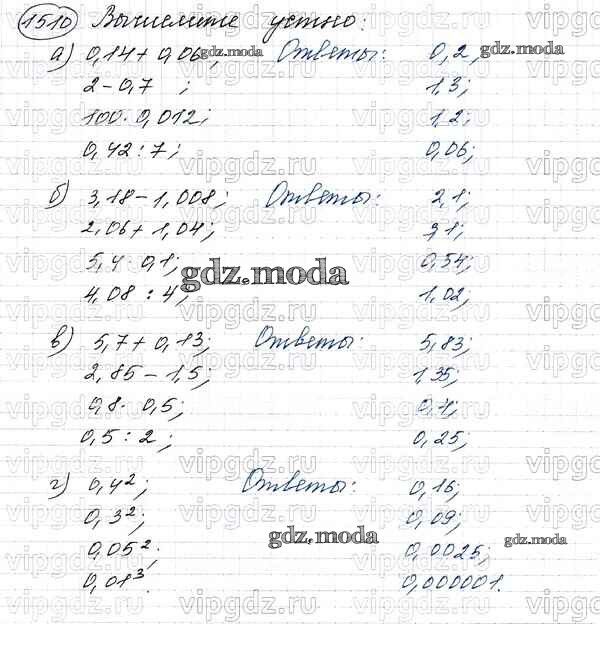 1510 Вычислите устно:
а) 0,14 + 0,06; Ответы: 0,2;
2 - 0,7 ; 1,3;
100 · 0,012; 1,2;
0,42 : 7; 0,06;
б) 3,18 - 1,008; Ответы: 2,1;
2,06 + 1,04; 3,1;
5,4 · 0,1; 0,54;
4,08 : 4; 1,02;
в) 5,7 + 0,13; Ответы: 5,83;
2,85 - 1,5; 1,35;
0,8 · 0,5; 0,4;
0,5 : 2; 0,25;
г) 0,4²; Ответы: 0,16;
0,3²; 0,09;
0,05²; 0,0025;
0,01³. 0,000001.
gdz.moda
gdz.moda
gdz.moda
gdz.moda
gdz.moda
vipgdz.ru